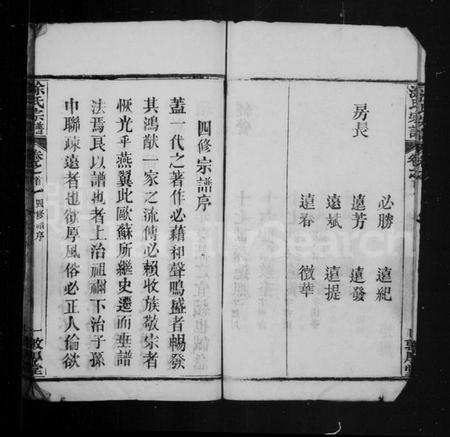 必勝 遠紀
遠芳 遠發
房長
遠斌 遠提
遠春 徵華
四修宗譜序
蓋一代之著作必藉和聲鳴盛者暢發
其鴻猷一家之流傳必賴收族敬宗者
恢光乎燕翼此歐蘇所繼史遷而垂譜
法焉良以譜也者上治祖禰下治子孫
中聯疎遠者也欲厚風俗必正人倫欲
涂氏宗譜 卷之首 四修譜序 一 敦厚堂